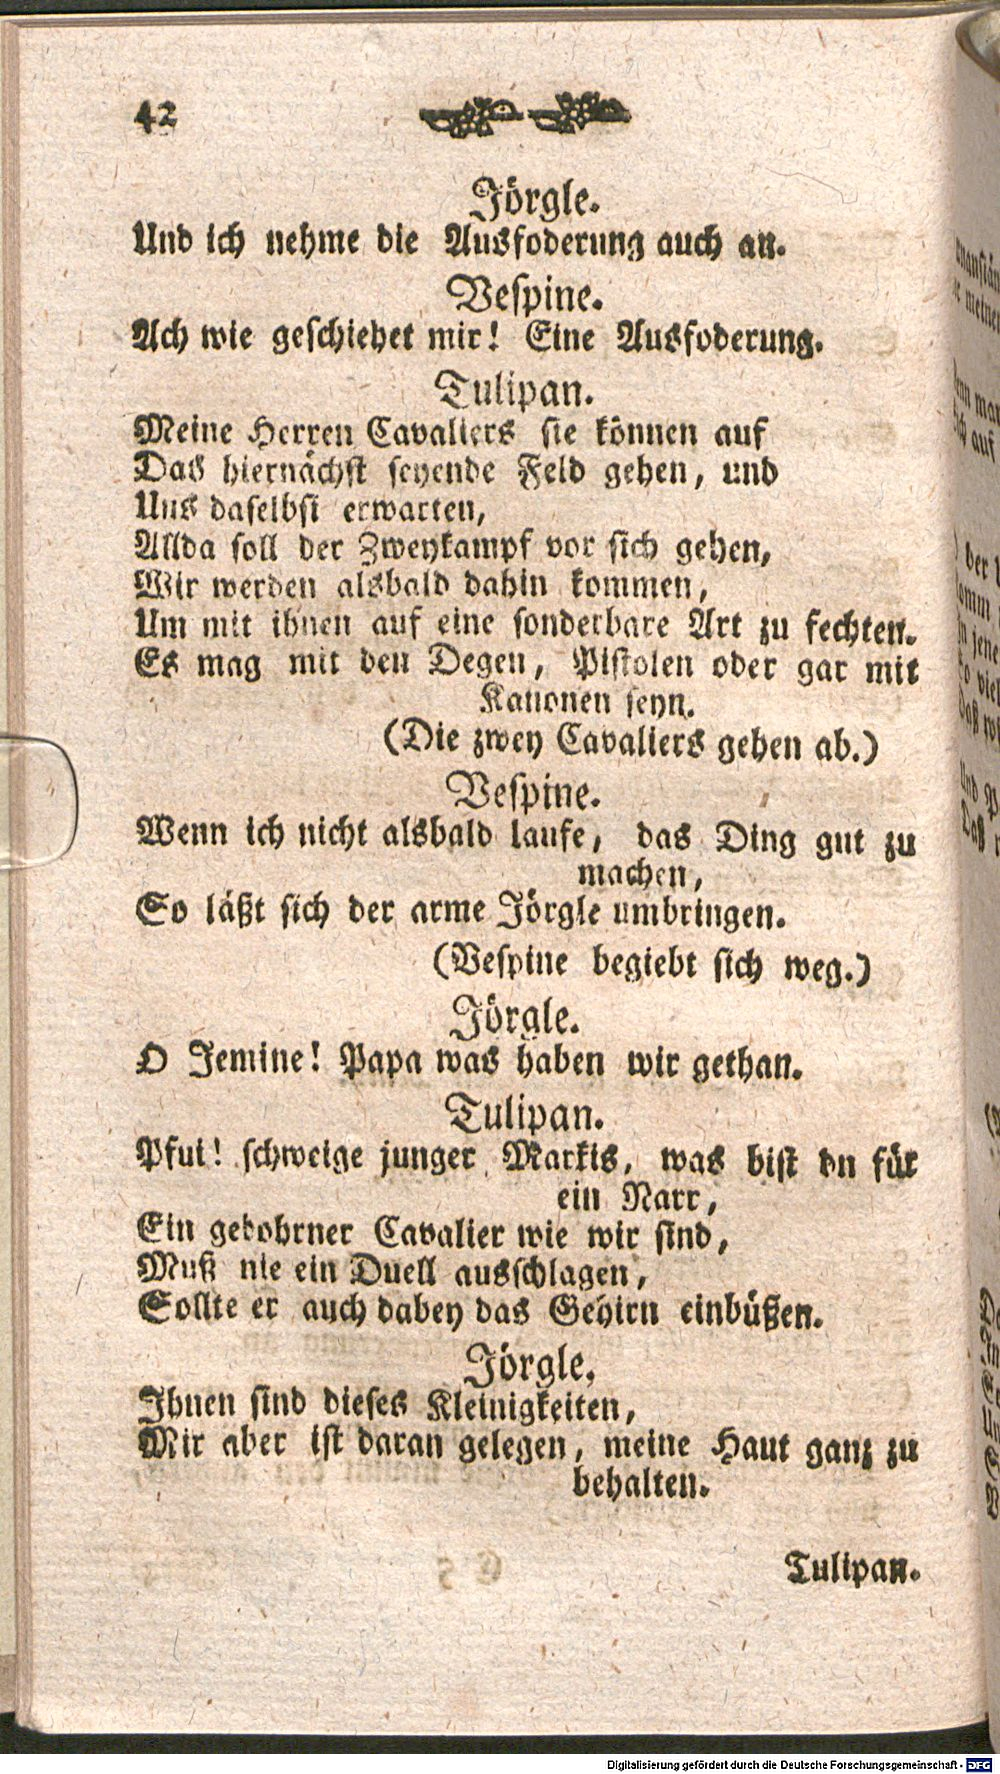 42
Jörgle.
Und ich nehme die Ausfoderung auch an.
Vespine.
Ach wie geschiehet mir! Eine Ausfoderung.
Tulipan.
Meine Herren Cavaliers sie können auf
Das hiernächst seyende Feld gehen, und
Uns daselbst erwarten,
Allda soll der Zweykampf vor sich gehen,
Wir werden alsbald dahin kommen,
Um mit ihnen auf eine sonderbare Art zu fechten.
Es mag mit den Degen, Pistolen oder gar mit
Kanonen seyn.
(Die zwey Cavaliers gehen ab.)
Vespine.
Wenn ich nicht alsbald laufe, das Ding gut zu
machen,
So läßt sich der arme Jörgle umbringen.
(Vespine begiebt sich weg.)
Jörgle.
O Jemine! Papa was haben wir gethan.
Tulipan.
Pfui! schweige junger Markis, was bist dn für
ein Narr,
Ein gebohrner Cavalier wie wir sind,
Muß nie ein Duell ausschlagen,
Sollte er auch dabey das Gehirn einbüßen.
Jörgle,
Ihnen sind dieses Kleinigkeiten,
Mir aber ist daran gelegen, meine Haut ganz zu
behalten.
Tulipan.
Digitalisierung gefördert durch die Deutsche Forschungsgemeinschaft - DFG